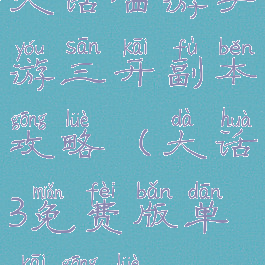 yóu sān kāi fù běn
游三开副本
gōng lüè dà huà
攻略(大话
miǎn fèi bǎn dān
3免费版单
kāi gōng lüè